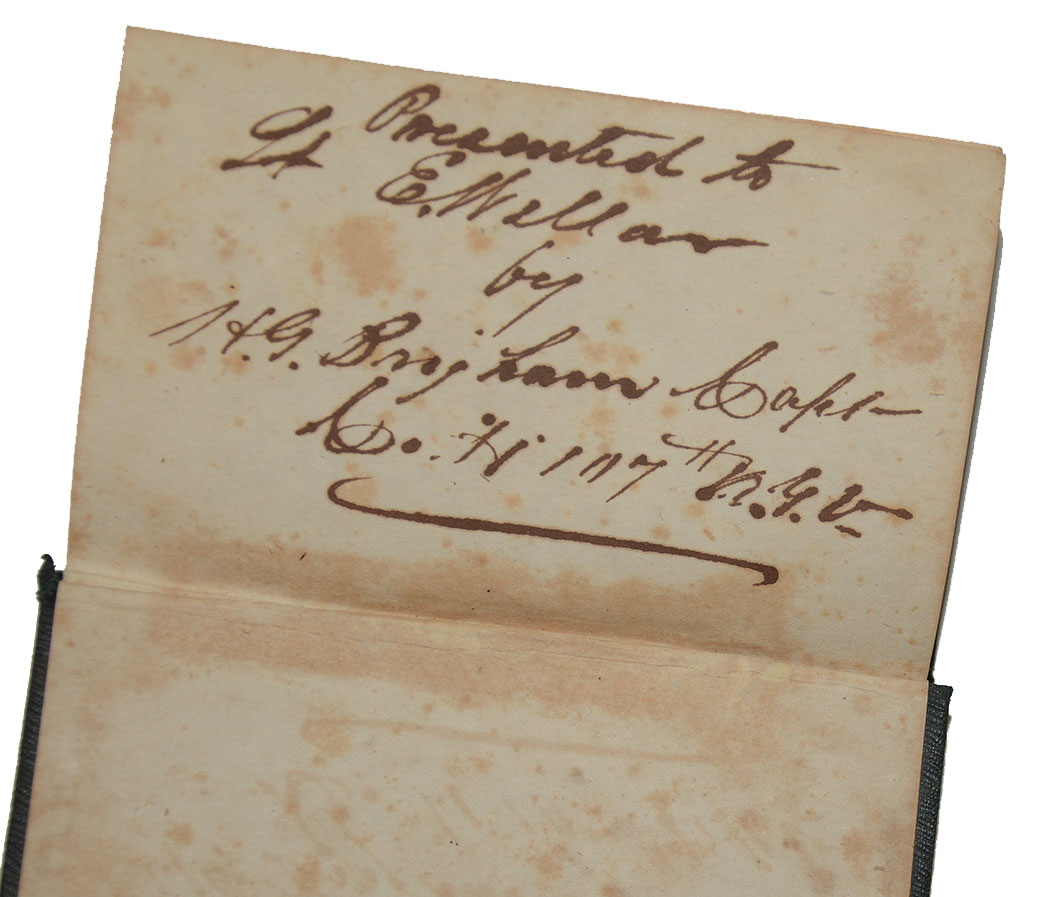 Presented to
Lt E. Willar
by
H.G. Brigham Capt
Co. H 107th N.Y.V.